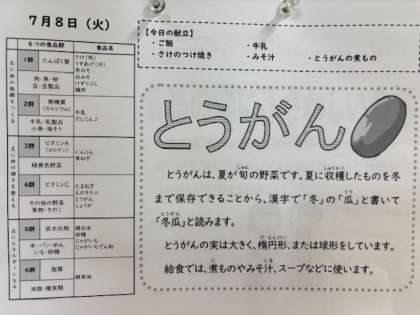 7月8日(火)
【今日の献立】
・ご飯 ・牛乳
・さけのつけ焼き ・みそ汁 ・とうがんの煮もの
6つの食品群 食品名
1群 たんぱく質
肉・魚・卵
豆・豆製品
2群 無機質
(カルシウム)
牛乳・乳製品
小魚・海そう
牛乳
だしこんぶ
3群 ビタミンA
(カロテン)
緑黄色野菜
にんじん
4群 ビタミンC
その他の野菜
果物・きのこ
たまねぎ
えのきたけ
とうがん
しょうが
5群 炭水化物
米・パン・めん
いも・砂糖
精白米
砂糖
じゃがいも
じゃがいもでん粉
6群 脂質
油脂・種実類
とうがん
とうがんは、夏が旬の野菜です。夏に収穫したものを冬
まで保存できることから、漢字で「冬」の「瓜」と書いて
「冬瓜」と読みます。
とうがんの実は大きく、楕円形、または球形をしています。
給食では、煮ものやみそ汁、スープなどに使います。